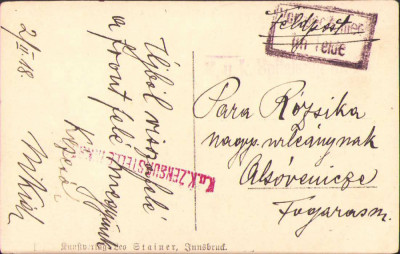 2/II 18
Ujból visszafelé
a front felé megyünk
Miklós
Feldpost
im Felde
K.u.K. ZENSURSTELLE
Para Rózsika
nagys. urleánynak
Alsóvenicze
Fogarasm.
Kunstverlag Leo Stainer, Innsbruck.